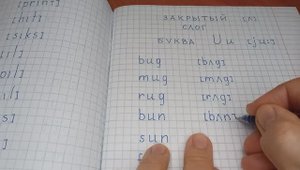 [print]
[sıks]
ЗАКРЫТЫЙ [ʌ]
СЛОГ
БУКВА Uu [ju:]
bug [bʌg]
mug [mʌg]
rug [rʌg]
bun [bʌn]
sun